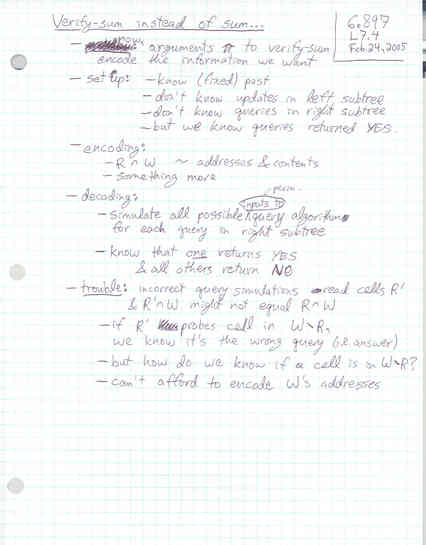 Verify-sum instead of sum...
6.897
L7.4
Feb. 24, 2005
- now, arguments π to verify-sum
encode the information we want
- setup: - know (fixed) past
- don't know updates in left subtree
- don't know queries in right subtree
- but we know queries returned YES.
- encoding:
- R ∩ W ~ addresses & contents
- something more
- decoding:
perm.
- simulate all possible inputs to query algorithm
for each query in right subtree
- know that one returns YES
& all others return NO
- trouble: incorrect query simulations read cells R'
& R' ∩ W might not equal R ∩ W
- if R' probes cell in W \ R,
we know it's the wrong query (i.e. answer)
- but how do we know if a cell is in W \ R?
- can't afford to encode W's addresses